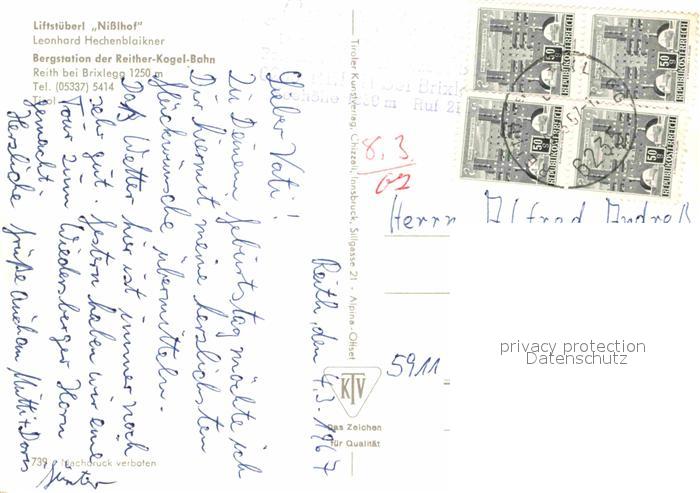 Liftstüberl „Nißlhof"
Leonhard Hechenblaikner
Bergstation der Reither-Kogel-Bahn
Reith bei Brixlegg 1250 m
Tel. (05337) 5414
Tirol
Reith, den 4.3.1967
Lieber Vati!
Zu Deinem Geburtstag möchte ich
Dir hiermit meine herzlichsten
Glückwünsche übermitteln.
Das Wetter hier ist immer noch
sehr gut. Gestern haben wir eine
Tour zum Wiedersberger Horn
gemacht.
Herzliche Grüße auch an Mutti + Doris
Günter
739 Nachdruck verboten
Tiroler Kunstverlag, Chizzali, Innsbruck, Sillgasse 21 - Alpina-Offset
KTV
Das Zeichen
für Qualität
8.3
Ruf
50 g
REPUBLIK ÖSTERREICH
50 g
REPUBLIK ÖSTERREICH
50 g
REPUBLIK ÖSTERREICH
50 g
REPUBLIK ÖSTERREICH
6235
Herrn Alfred Andreß
5911
privacy protection
Datenschutz